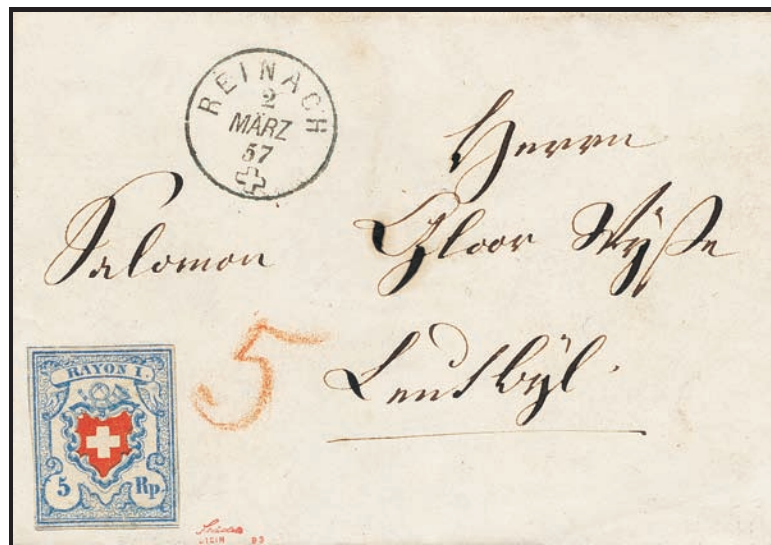 REINACH
2
MÄRZ
57
Herrn
Salomon Gloor Wyße
Leutwyl.
5
RAYON I.
5 Rp.